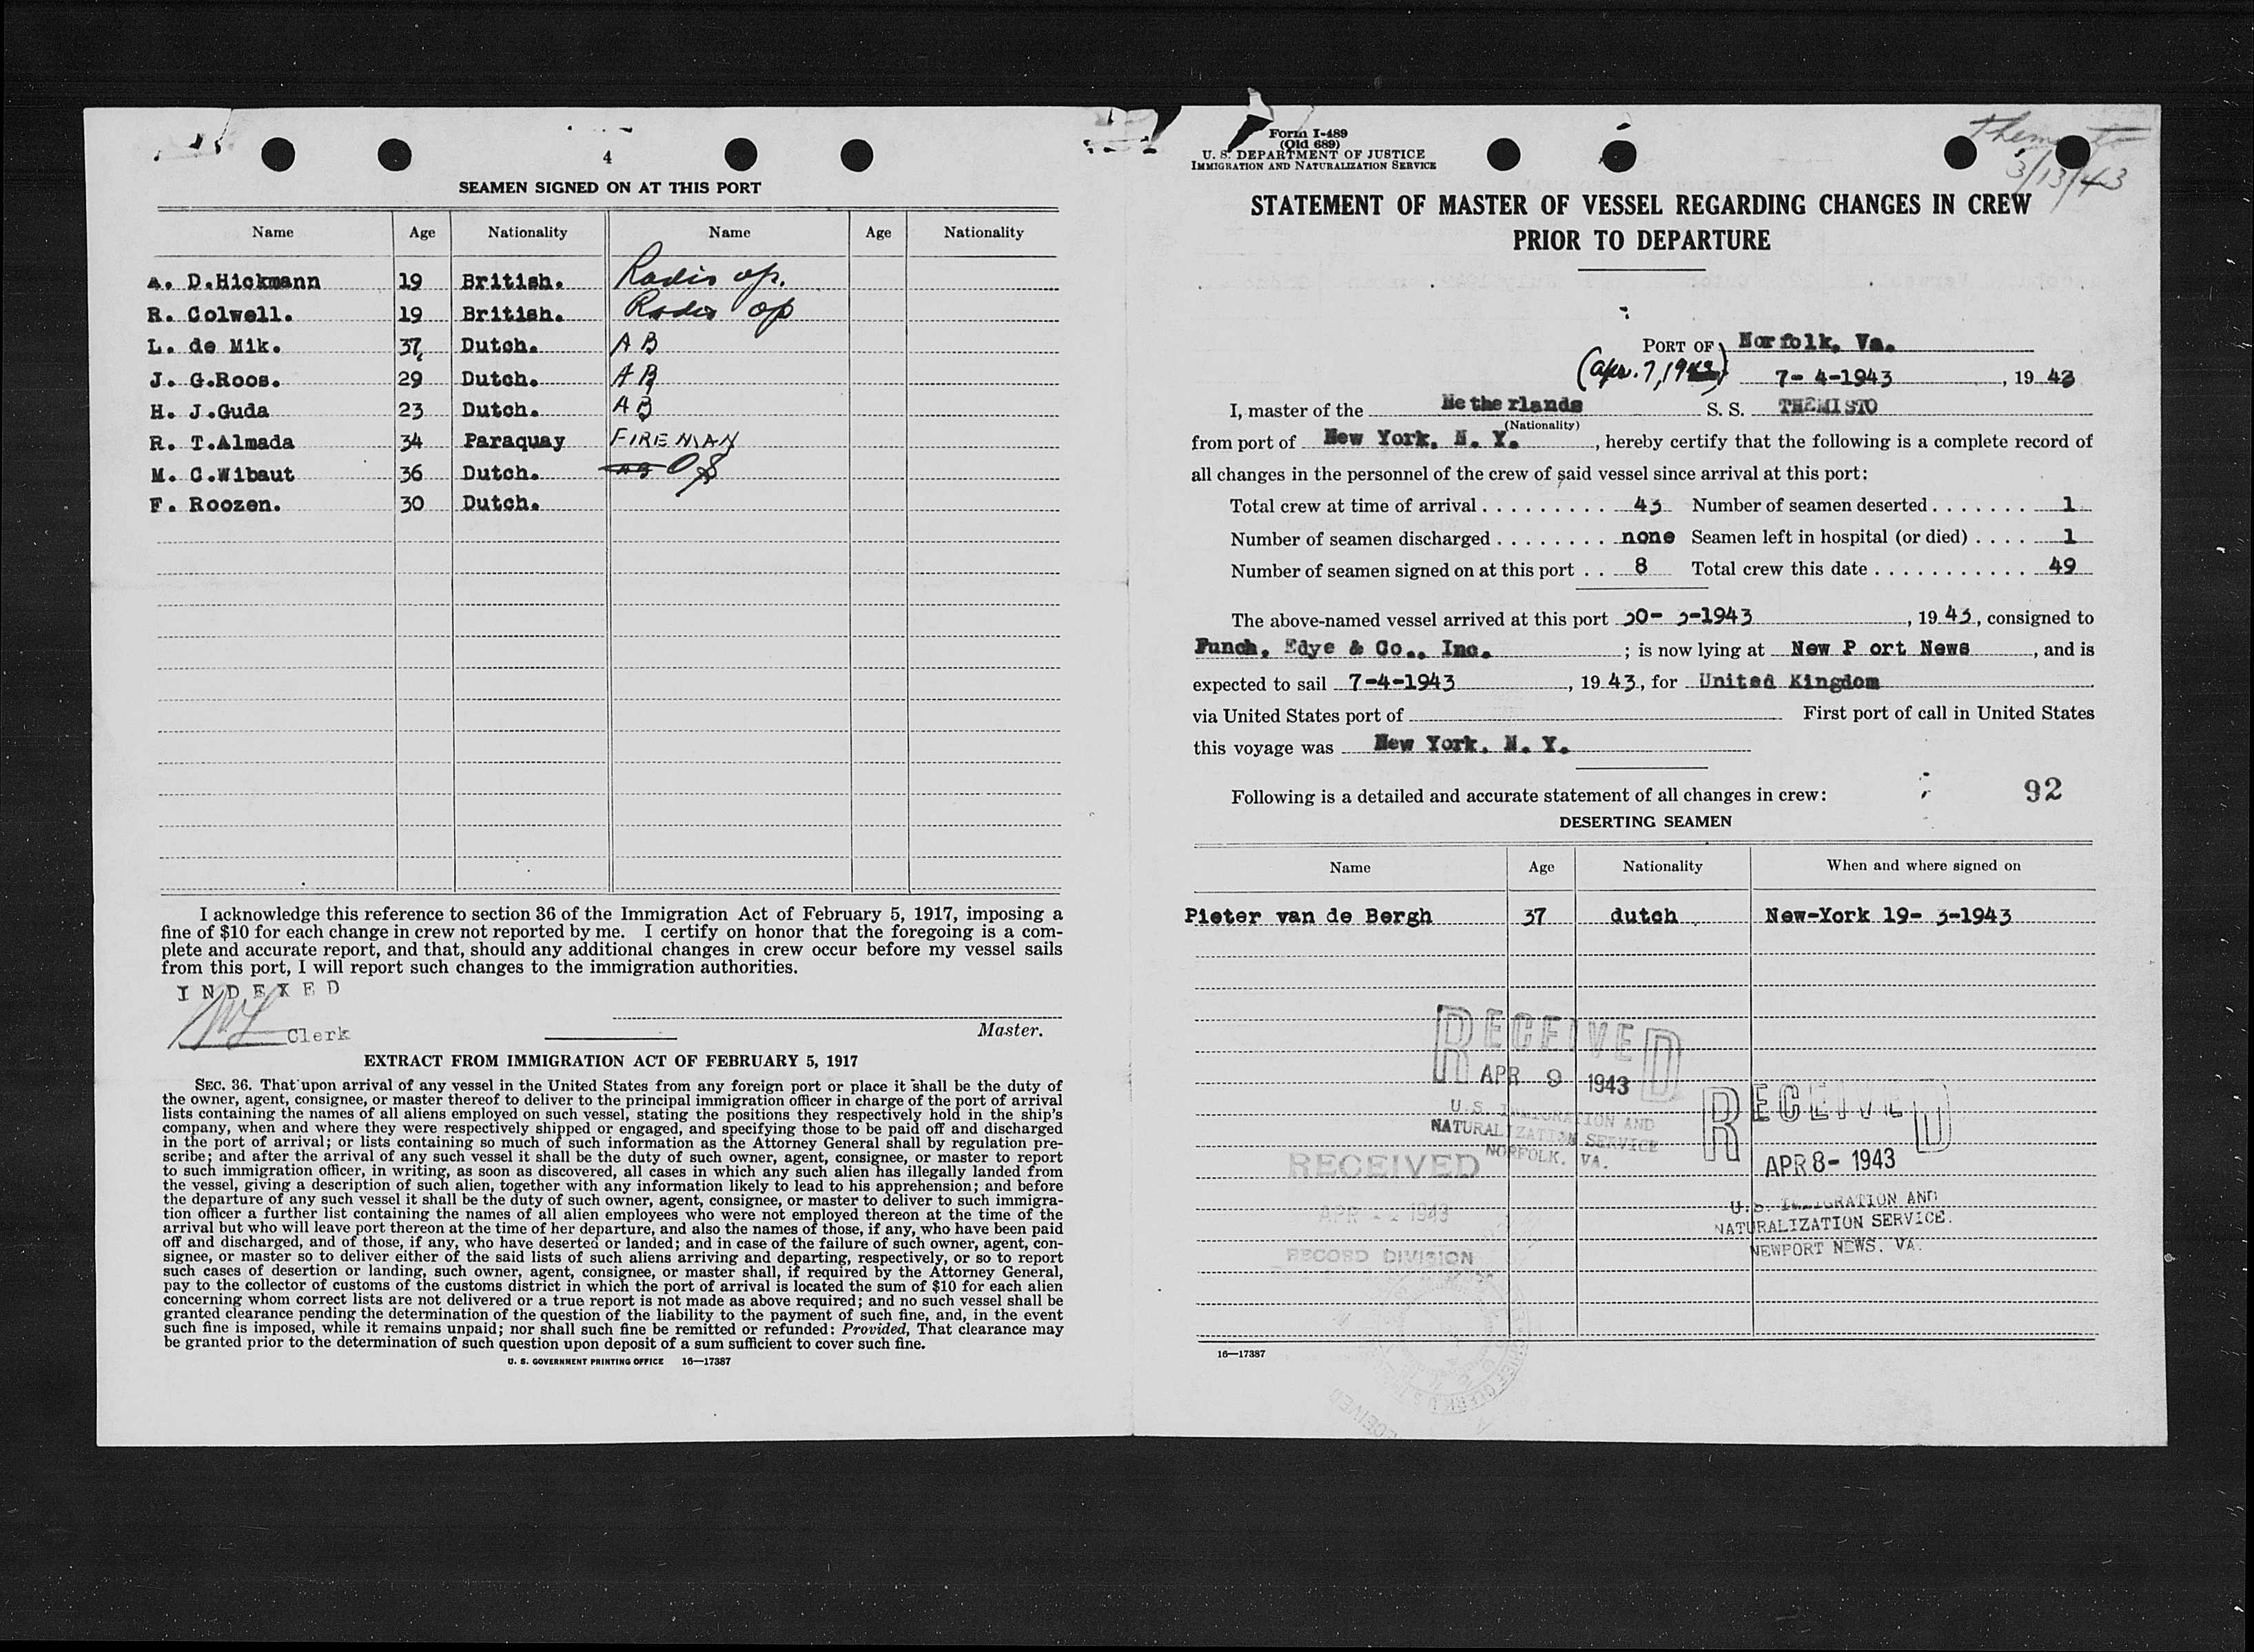 4
SEAMEN SIGNED ON AT THIS PORT
Name Age Nationality Name Age Nationality
A. D.Hickmann 19 British. Radio op.
R. Colwell. 19 British. Radio op
L. de Mik. 37 Dutch. A B
J. G.Roos. 29 Dutch. A B
H. J.Guda 23 Dutch. A B
R. T.Almada 34 Paraquay FIREMAN
M. C.Wibaut 36 Dutch. OS
F. Roozen. 30 Dutch.
I acknowledge this reference to section 36 of the Immigration Act of February 5, 1917, imposing a
fine of $10 for each change in crew not reported by me. I certify on honor that the foregoing is a com-
plete and accurate report, and that, should any additional changes in crew occur before my vessel sails
from this port, I will report such changes to the immigration authorities.
INDEXED
Clerk
Master.
EXTRACT FROM IMMIGRATION ACT OF FEBRUARY 5, 1917
SEC. 36. That upon arrival of any vessel in the United States from any foreign port or place it shall be the duty of
the owner, agent, consignee, or master thereof to deliver to the principal immigration officer in charge of the port of arrival
lists containing the names of all aliens employed on such vessel, stating the positions they respectively hold in the ship's
company, when and where they were respectively shipped or engaged, and specifying those to be paid off and discharged
in the port of arrival; or lists containing so much of such information as the Attorney General shall by regulation pre-
scribe; and after the arrival of any such vessel it shall be the duty of such owner, agent, consignee, or master to report
to such immigration officer, in writing, as soon as discovered, all cases in which any such alien has illegally landed from
the vessel, giving a description of such alien, together with any information likely to lead to his apprehension; and before
the departure of any such vessel it shall be the duty of such owner, agent, consignee, or master to deliver to such immigra-
tion officer a further list containing the names of all alien employees who were not employed thereon at the time of the
arrival but who will leave port thereon at the time of her departure, and also the names of those, if any, who have been paid
off and discharged, and of those, if any, who have deserted or landed; and in case of the failure of such owner, agent, con-
signee, or master so to deliver either of the said lists of such aliens arriving and departing, respectively, or so to report
such cases of desertion or landing, such owner, agent, consignee, or master shall, if required by the Attorney General,
pay to the collector of customs of the customs district in which the port of arrival is located the sum of $10 for each alien
concerning whom correct lists are not delivered or a true report is not made as above required; and no such vessel shall be
granted clearance pending the determination of the question of the liability to the payment of such fine, and, in the event
such fine is imposed, while it remains unpaid; nor shall such fine be remitted or refunded: Provided, That clearance may
be granted prior to the determination of such question upon deposit of a sum sufficient to cover such fine.
U. S. GOVERNMENT PRINTING OFFICE 16—17387
Form I-489
(Old 689)
U. S. DEPARTMENT OF JUSTICE
IMMIGRATION AND NATURALIZATION SERVICE
Themisto
3/13/43
STATEMENT OF MASTER OF VESSEL REGARDING CHANGES IN CREW
PRIOR TO DEPARTURE
PORT OF Norfolk, Va.
(Apr. 7, 1943) 7- 4-1943, 19 43
I, master of the Netherlands S. S. THEMISTO
(Nationality)
from port of New York, N. Y., hereby certify that the following is a complete record of
all changes in the personnel of the crew of said vessel since arrival at this port:
Total crew at time of arrival 43 Number of seamen deserted 1
Number of seamen discharged none Seamen left in hospital (or died) 1
Number of seamen signed on at this port 8 Total crew this date 49
The above-named vessel arrived at this port 30- 3-1943, 19 43, consigned to
Funch, Edye & Co., Inc.; is now lying at New P ort News, and is
expected to sail 7-4-1943, 19 43, for United Kingdom
via United States port of First port of call in United States
this voyage was New York, N. Y.
Following is a detailed and accurate statement of all changes in crew: 92
DESERTING SEAMEN
Name Age Nationality When and where signed on
Pieter van de Bergh 37 dutch New-York 19- 3-1943
RECEIVED
APR 9 1943
U.S. IMMIGRATION AND
NATURALIZATION SERVICE
NORFOLK, VA.
RECEIVED
APR 8- 1943
U.S. IMMIGRATION AND
NATURALIZATION SERVICE.
NEWPORT NEWS, VA.
RECEIVED
APR 1943
RECORD DIVISION
16—17387
RECEIVED